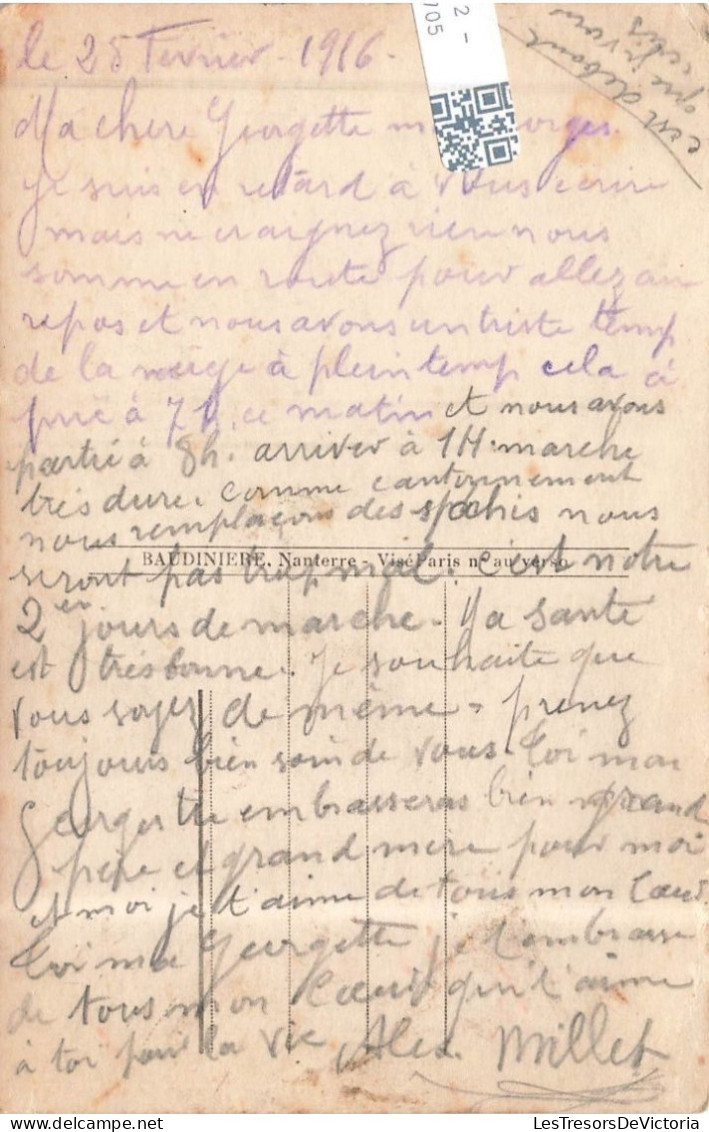 2 -
705
c'est debout
que je vous
écris
le 25 Fevrier - 1916 -
Ma chere Georgette m orges.
je suis en retard à vous ecrire
mais ne craignez rien nous
somme en route pour allez au
repos et nous avons un triste temp
de la neige à plein temp cela à
pric à 7h, ce matin et nous avons
partié à 8h. arriver à 1H. marche
très dure. comme cantonnement
nous remplaçons des spahis nous
BAUDINIERE, Nanterre - Visé Paris n° au verso
seront pas trop mal. c'est notre
2em jours de marche. Ma santé
est très bonne. Je souhaite que
vous soyez de même = prenez
toujours bien soin de vous. Toi mon
Georges tu embrasseras bien grand
père et grand mère pour moi
et moi je t'aime de tous mon Cœur
Toi ma Georgette je t'embrasse
de tous mon Cœur qui t'aime
à toi pour la vie Alex. Millet
LesTresorsDeVictoria